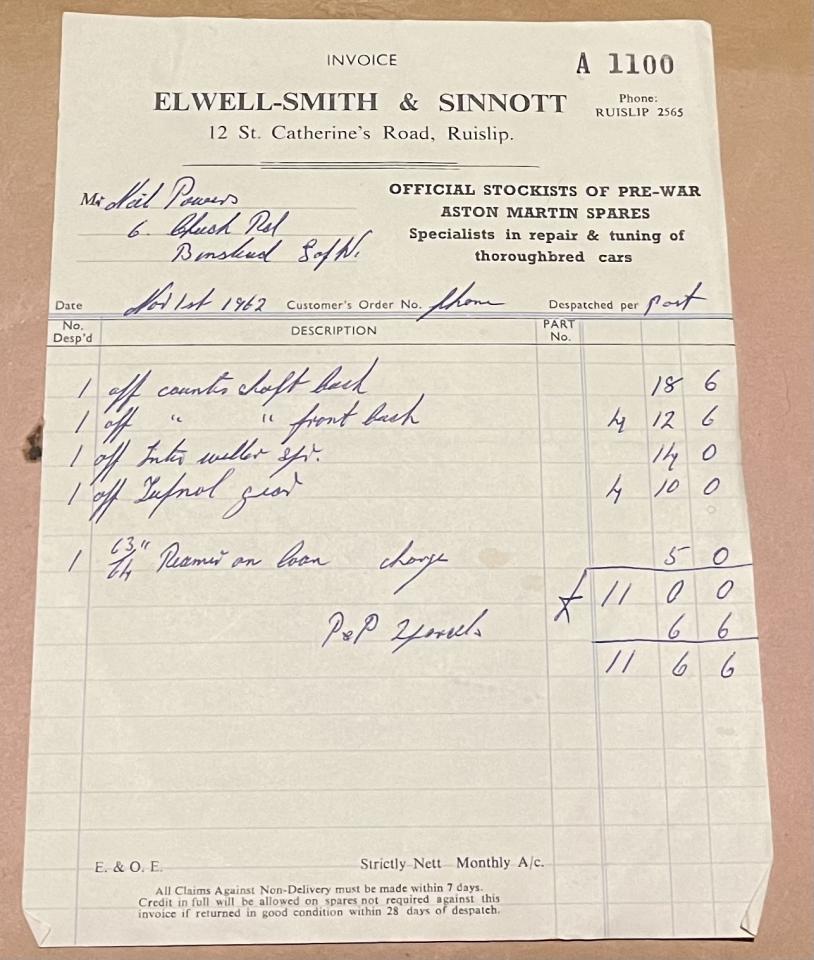 INVOICE
A 1100
ELWELL-SMITH & SINNOTT
Phone:
RUISLIP 2565
12 St. Catherine's Road, Ruislip.
Mr Neil Powers
6. Rd
Binstead I of W.
OFFICIAL STOCKISTS OF PRE-WAR
ASTON MARTIN SPARES
Specialists in repair & tuning of
thoroughbred cars
Date Nov 1st 1962 Customer's Order No. phone Despatched per post
No. Desp'd DESCRIPTION PART No.
1 off counter shaft bush 18 6
1 off " " front bush 4 12 6
1 off Inter 14 0
1 off Tufnol gear 4 10 0
1 63/64" Reamer on loan charge 5 0
£ 11 0 0
P&P 2 parcels 6 6
11 6 6
E. & O. E. Strictly Nett Monthly A/c.
All Claims Against Non-Delivery must be made within 7 days.
Credit in full will be allowed on spares not required against this
invoice if returned in good condition within 28 days of despatch.